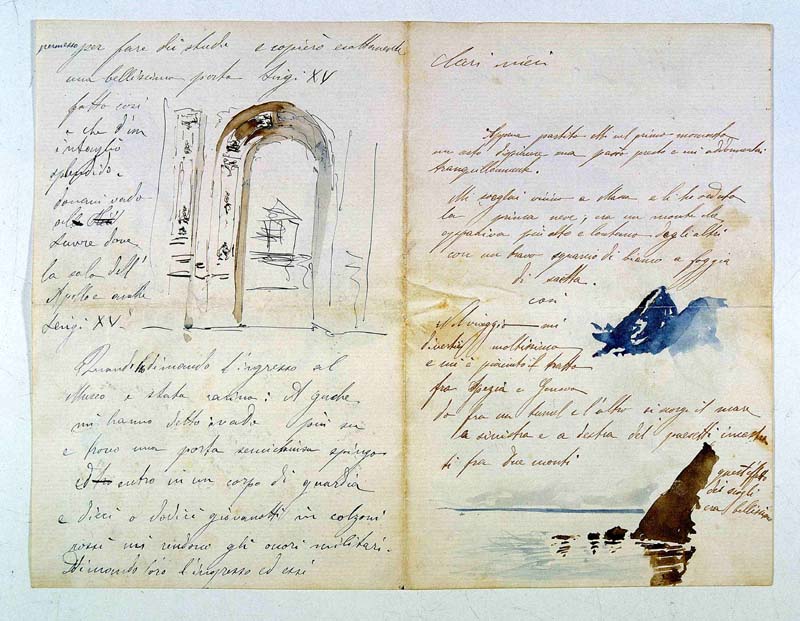 permesso per fare dei studi e copierò esattamente
una bellissima porta Luigi XV
fatta così
e che d'un
intaglio
splendido.
domani vado
al
Luvre dove
la sala dell'
Apollo e anche
Luigi XV.
Quand dimando l'ingresso al
Museo è stata carina: il guche
mi hanno detto vada più su
e trovo una porta semichiusa spingo
entro in un corpo di guardia
e dieci o dodici giovanotti in calzoni
rossi mi rendono gli onori militari.
Dimando loro l'ingresso ed essi
Cari miei
Appena partito ebbi sul primo momento
un certo ma passò presto e mi addormentai
tranquillamente.
Mi svegliai vicino a Massa e lì ho veduto
la prima neve; era un monte che
appariva più alto e lontano degli altri
con un bravo sguarzo di bianco a foggia
di saetta.
così
Nel viaggio mi
divertii moltissimo
e mi è piaciuto il tratto
fra Spezia e Genova
Da fra un tunnel e l'altro si scorge il mare
la sinistra e a destra dei paesetti incastra
ti fra due monti
quest'effetto
dei scogli
era bellissimo